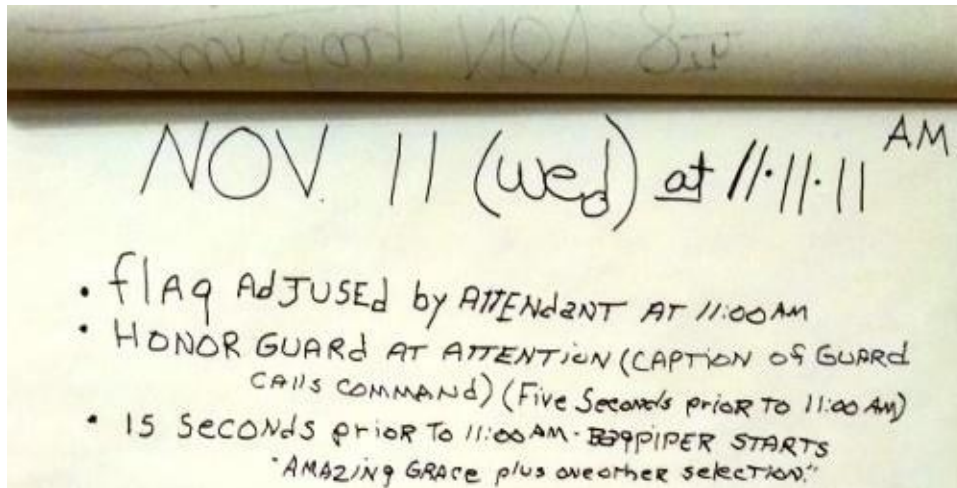 NOV 8th
NOV. 11 (wed) at 11:11:11 AM
• flAg AdJUSEd by ATTENdaNT AT 11:00 AM
• HONOR GUARd AT ATTENTiON (CAPTiON Of GUARd
CAlls COMMANd) (Five Seconds prioR To 11:00 AM)
• 15 SECONds prioR To 11:00 AM - Bagpiper STARTS
"AMAZiNg GRAce plus one other selection."